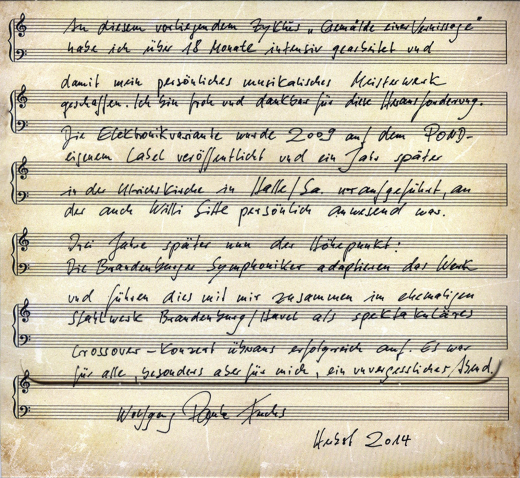 An diesem vorliegendem Zyklus „Gemälde einer Vernissage"
habe ich über 18 Monate intensiv gearbeitet und
damit mein persönliches musikalisches Meisterwerk
geschaffen. Ich bin froh und dankbar für diese Herausforderung.
Die Elektronikvariante wurde 2009 auf dem POND-
eigenem Label veröffentlicht und ein Jahr später
in der Ulrichskirche in Halle/Sa. uraufgeführt, an
der auch Willi Sitte persönlich anwesend war.
Drei Jahre später nun der Höhepunkt:
Die Brandenburger Symphoniker adaptieren das Werk
und führen dies mit mir zusammen im ehemaligen
Stahlwerk Brandenburg/Havel als spektakuläres
Crossover-Konzert überaus erfolgreich auf. Es war
für alle, besonders aber für mich, ein unvergesslicher Abend.
Wolfgang Fuchs
Herbst 2014